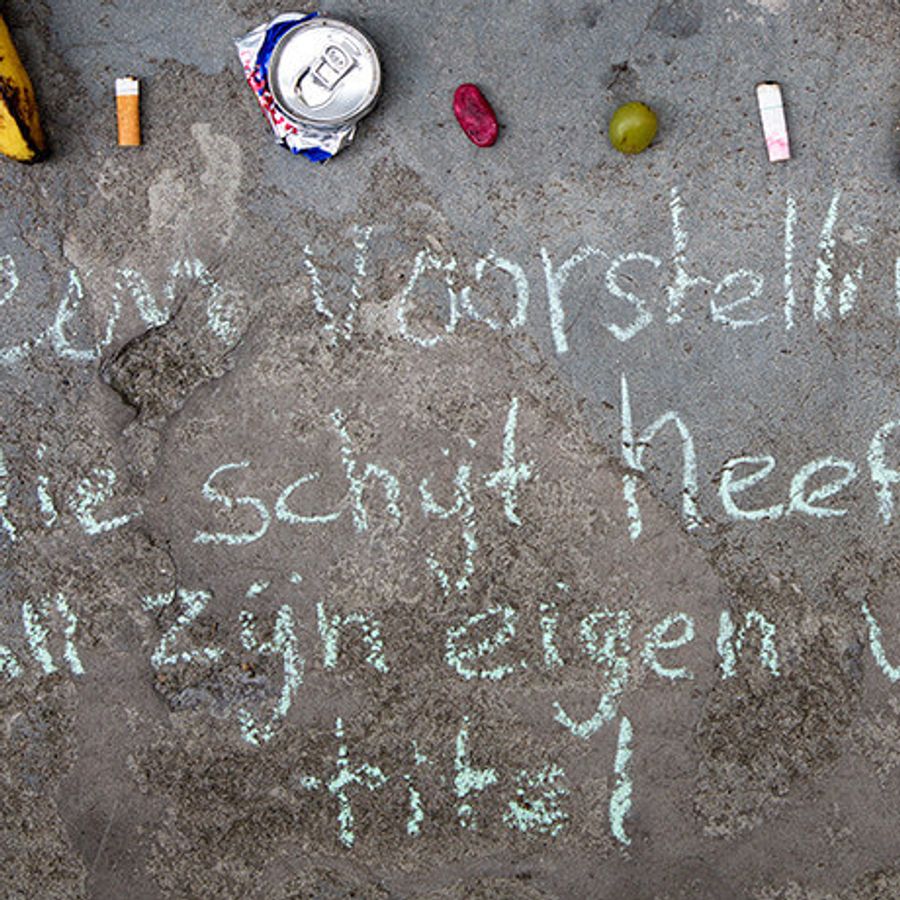 voorstellin
ie schijt heef
zijn eigen
titel